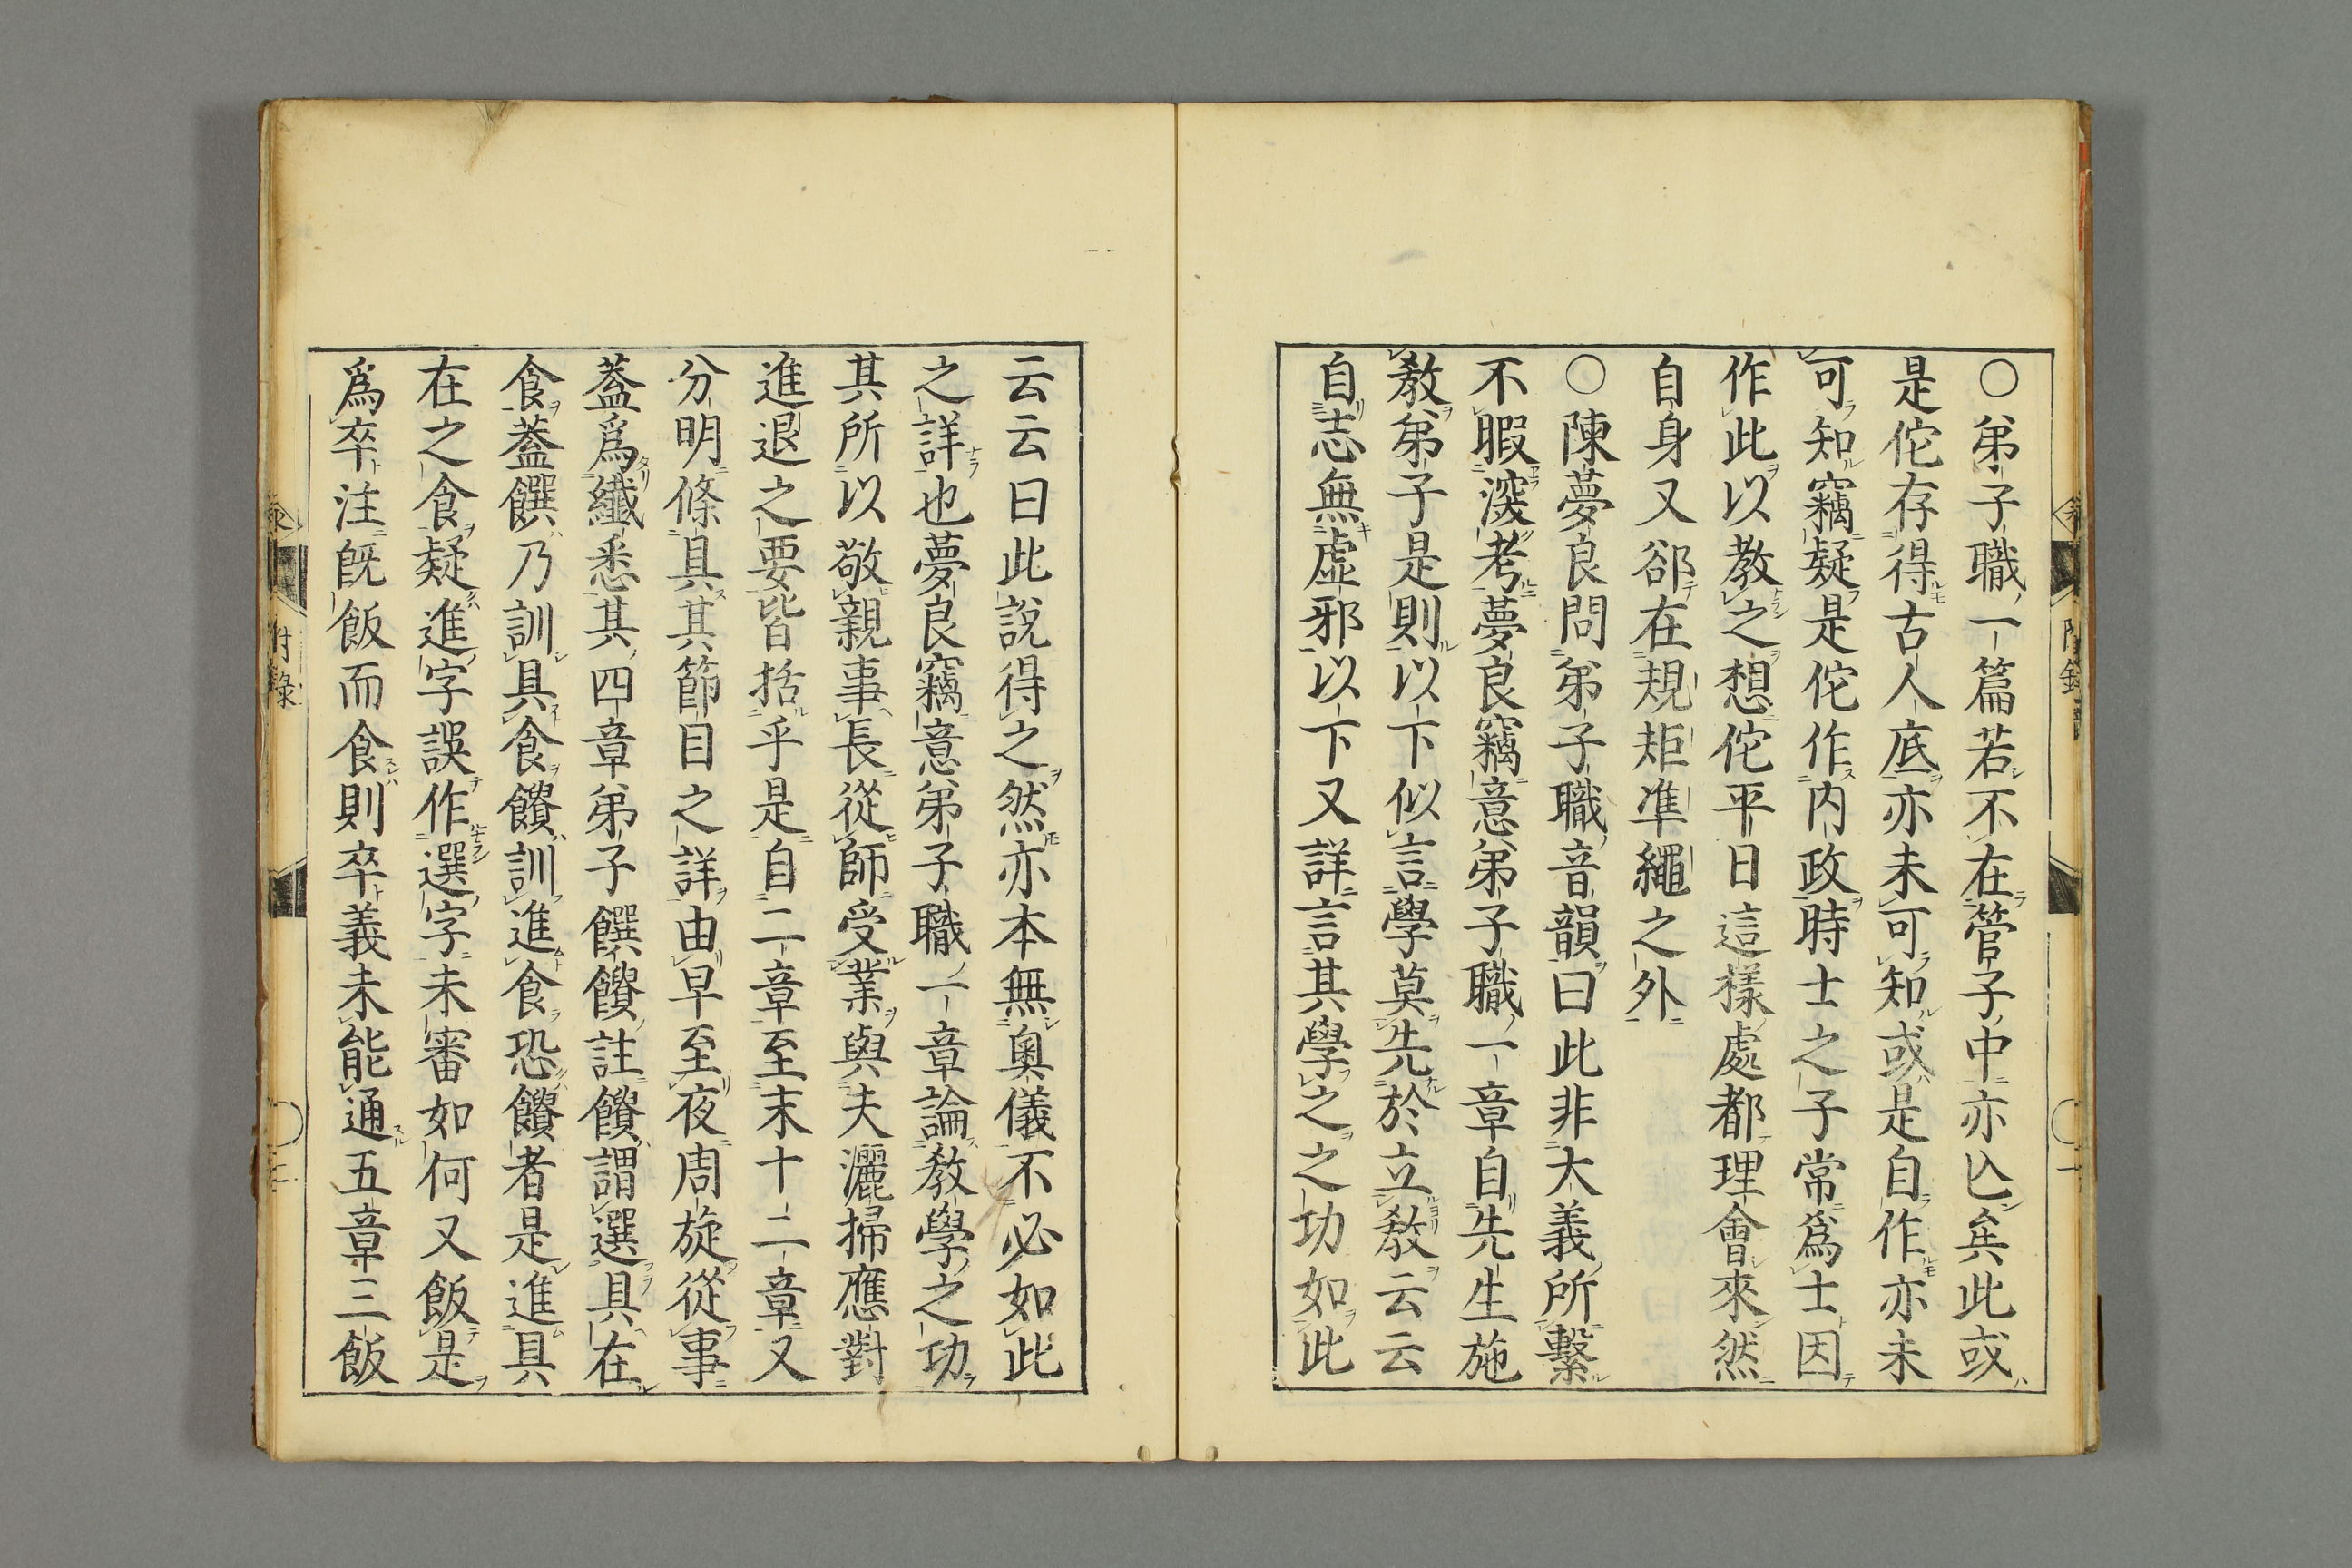 〇弟子職一篇若不在管子中亦亾矣此或
是佗存得古人底亦未可知或是自作亦未
可知竊疑是佗作内政時士之子常爲士因
作此以敎之想佗平日這樣處都理會來然
自身又郤在規矩凖繩之外
〇陳夢良問弟子職音韻曰此非大義所繫
不暇深考夢良竊意弟子職一章自先生施
敎弟子是則以下似言學莫先於立敎云云
自志無虛邪以下又詳言其學之之功如此
云云曰此說得之然亦本無奧儀不必如此
之詳也夢良竊意弟子職一章論敎學之功
其所以敬親事長從師受業與夫灑掃應對
進退之要皆括乎是自二章至末十二章又
分明條具其節目之詳由早至夜周旋從事
蓋爲纖悉其四章弟子饌饋註饋謂選具在
食蓋饌乃訓具食饋訓進食恐饋者是進具
在之食疑進字誤作選字未審如何又飯是
爲卒注旣飯而食則卒義未能通五章三飯
附錄